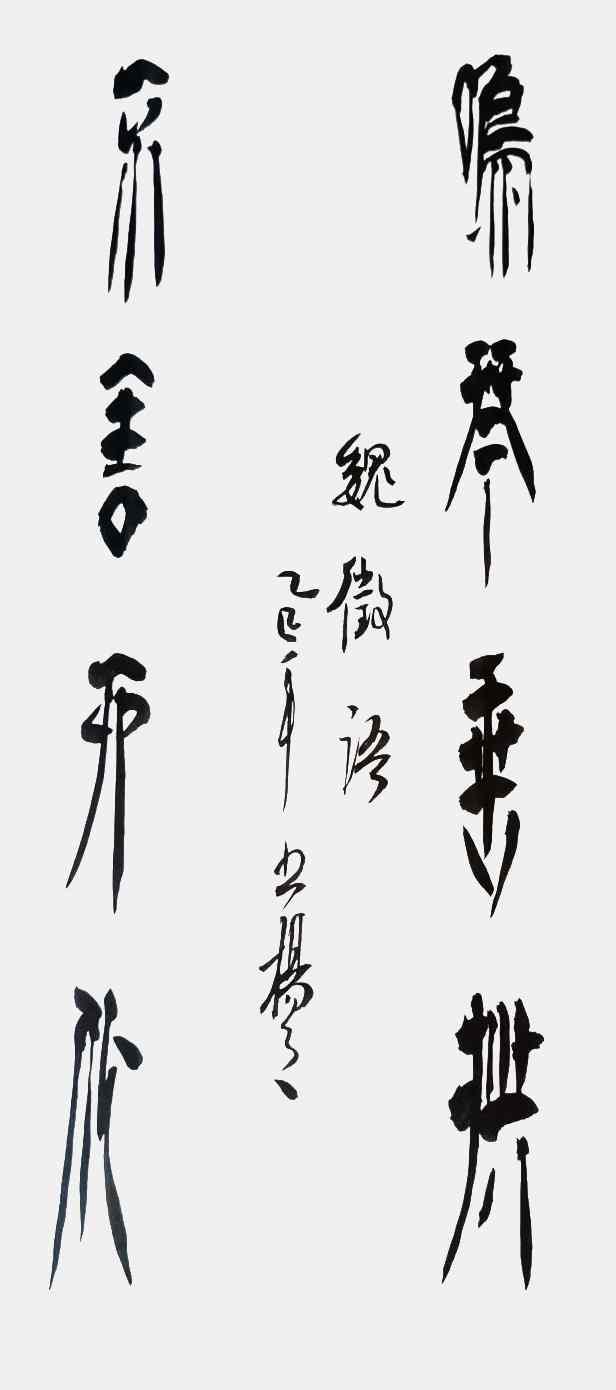 鳴琴垂拱
不言而化
魏徵語
乙巳年 楊